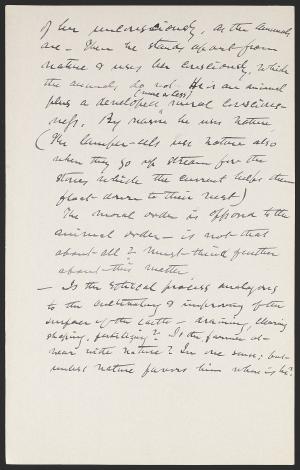 of her unconsciously, as the animals
are – Then he stands apart from
nature & uses her consciously, which
the animals do not. He is an animal
(more or less)
plus a developed moral conscious-
ness. By reason he uses nature.
(The lamper-eels use nature also
when they go up stream for the
stones which the current helps them
float down to their nest)
The moral order is opposed to the
animal order – is not that
about all? Must think further
about this matter.
– Is the Ethical process analogous
to the cultivating & improving of the
surface of the Earth – draining, clearing
shaping, fertilizing? Is the farmer at
war with nature? In one sense; but
unless nature favors him where is he?